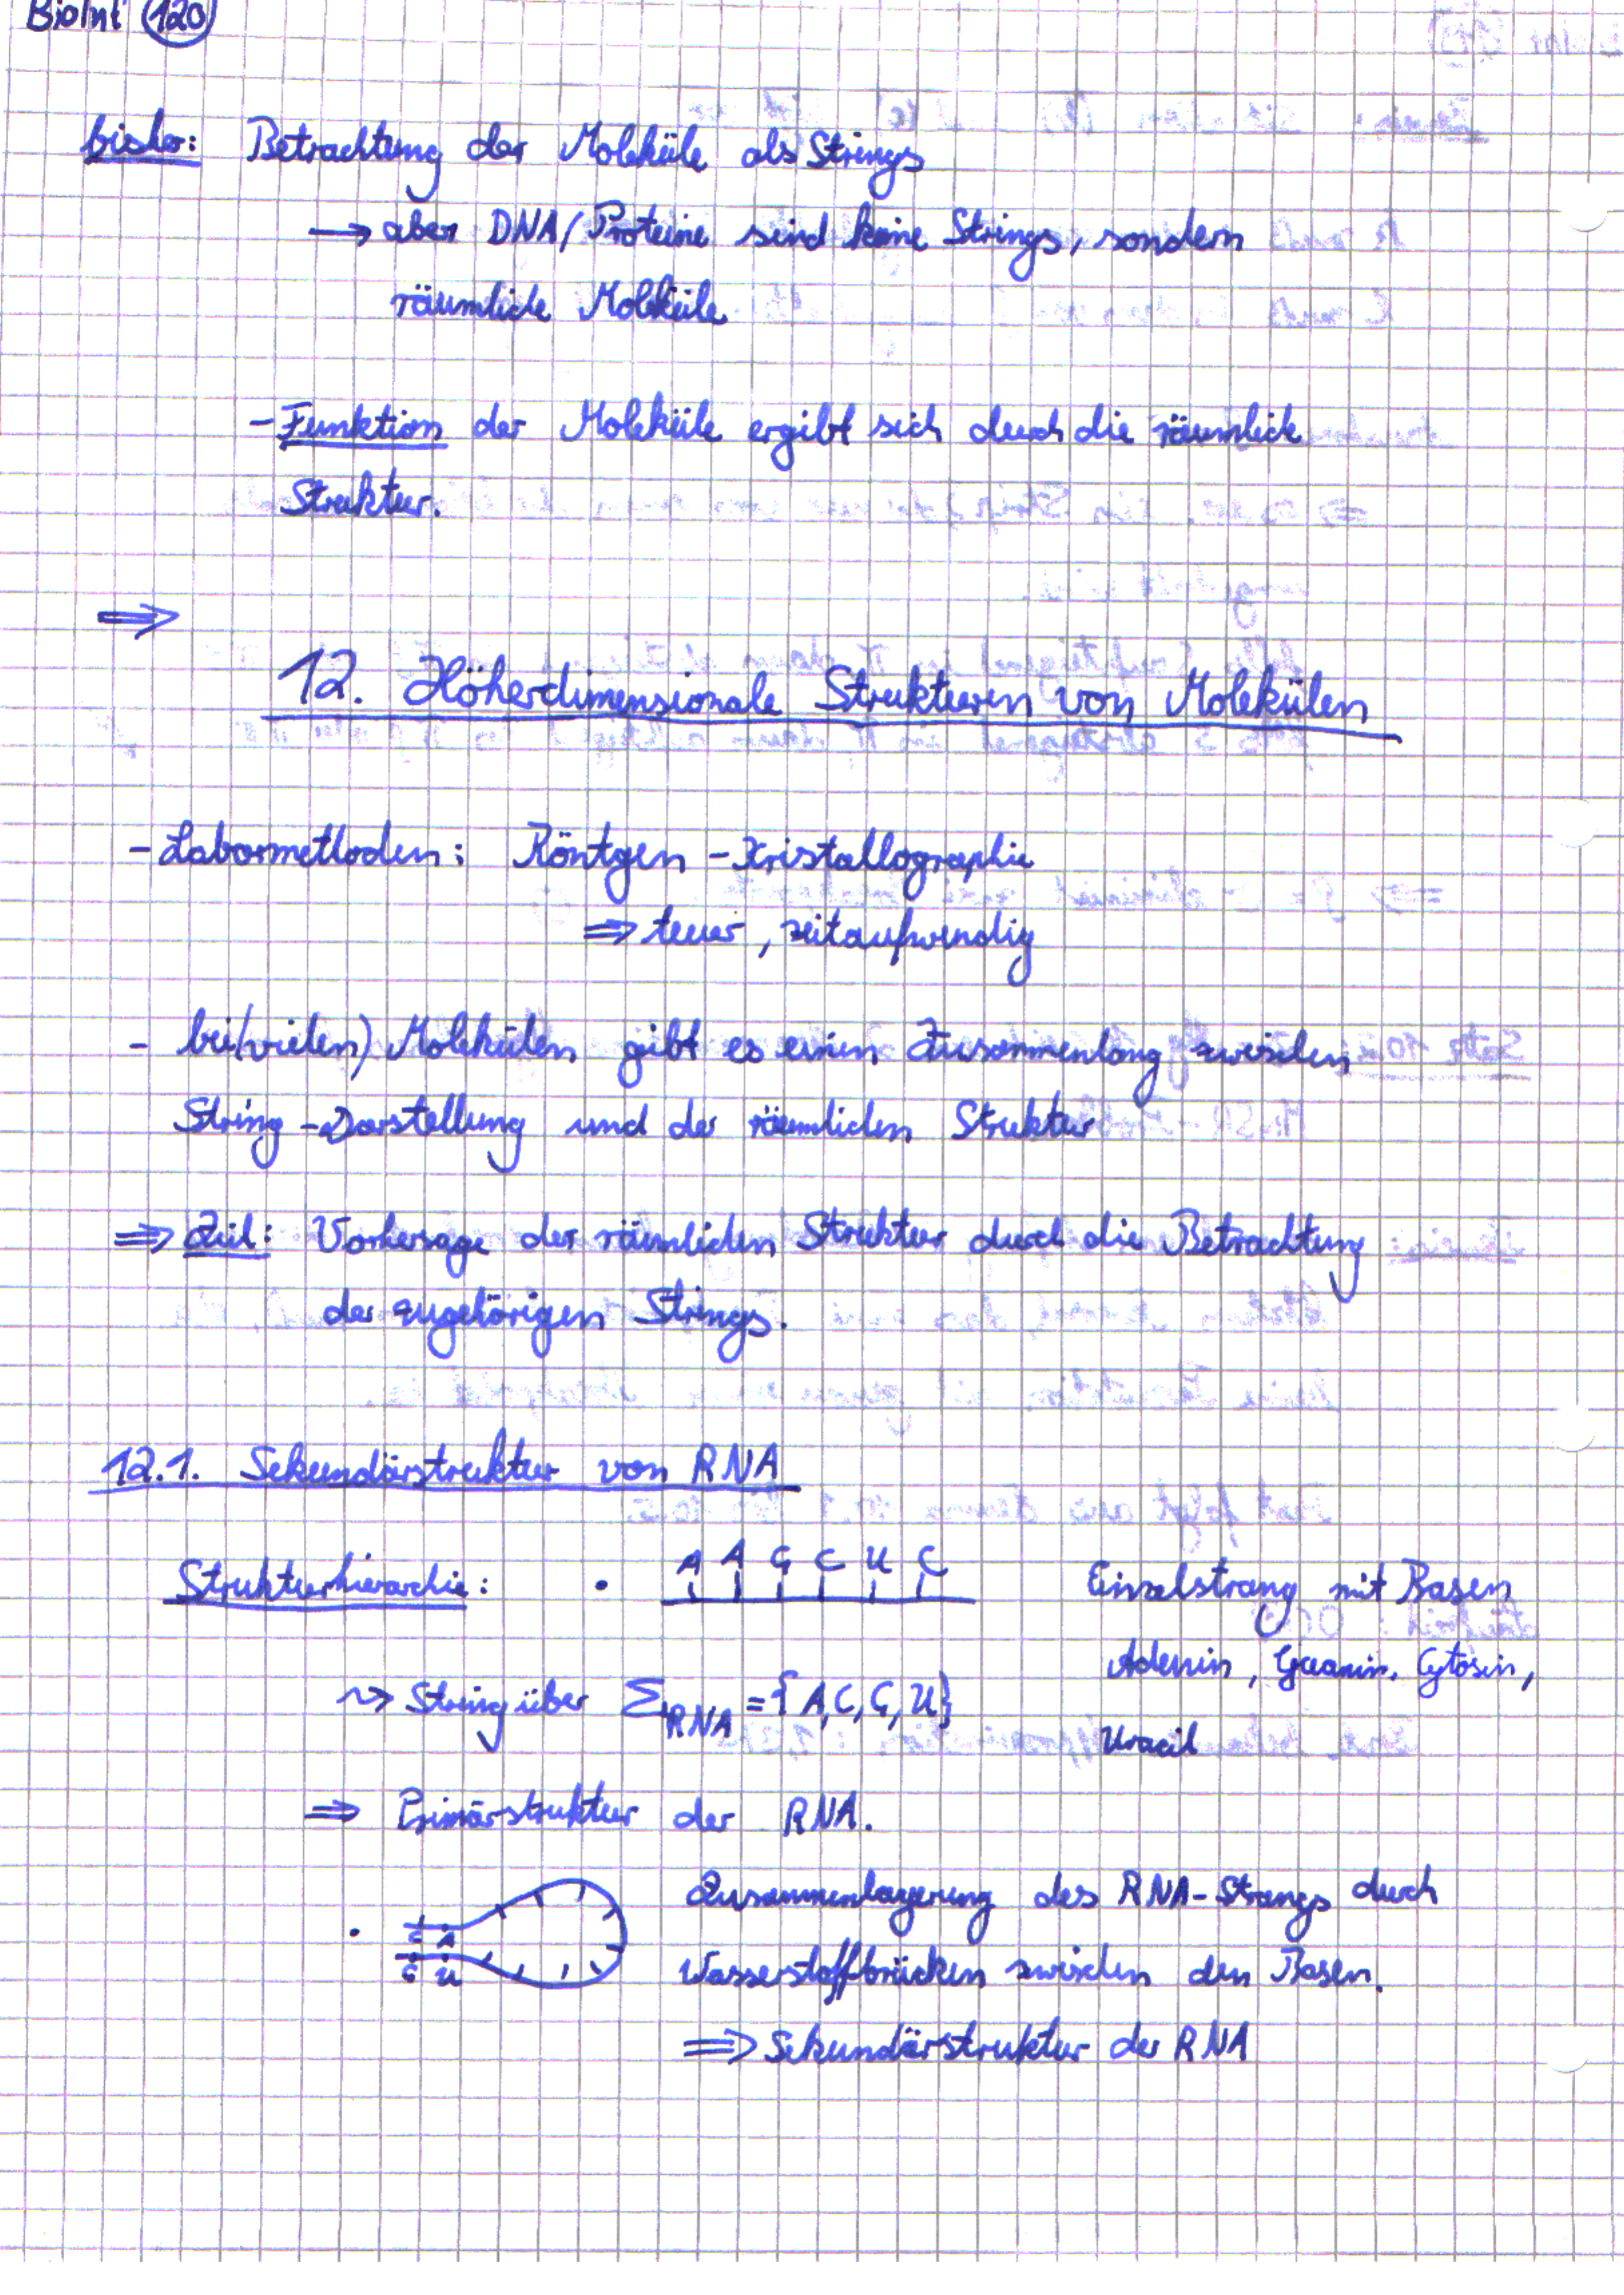 BioInf 120
bisher: Betrachtung der Moleküle als Strings
→ aber DNA/Proteine sind keine Strings, sondern
räumliche Moleküle
- Funktion der Moleküle ergibt sich durch die räumliche
Struktur.
⇒
12. Höherdimensionale Strukturen von Molekülen
- Labormethoden: Röntgen-Kristallographie
⇒ teuer, zeitaufwendig
- bei (vielen) Molekülen gibt es einen Zusammenhang zwischen
String-Darstellung und der räumlichen Struktur
⇒ Ziel: Vorhersage der räumlichen Struktur durch die Betrachtung
der zugehörigen Strings.
12.1. Sekundärstruktur von RNA
Strukturhierarchie: • A A G C U C Einzelstrang mit Basen
Adenin, Guanin, Cytosin,
⇝ String über Σ_RNA = {A, C, G, U}
Uracil
⇒ Primärstruktur der RNA.
• Zusammenlagerung des RNA-Strangs durch
C A
G U
Wasserstoffbrücken zwischen den Basen.
⇒ Sekundärstruktur der RNA